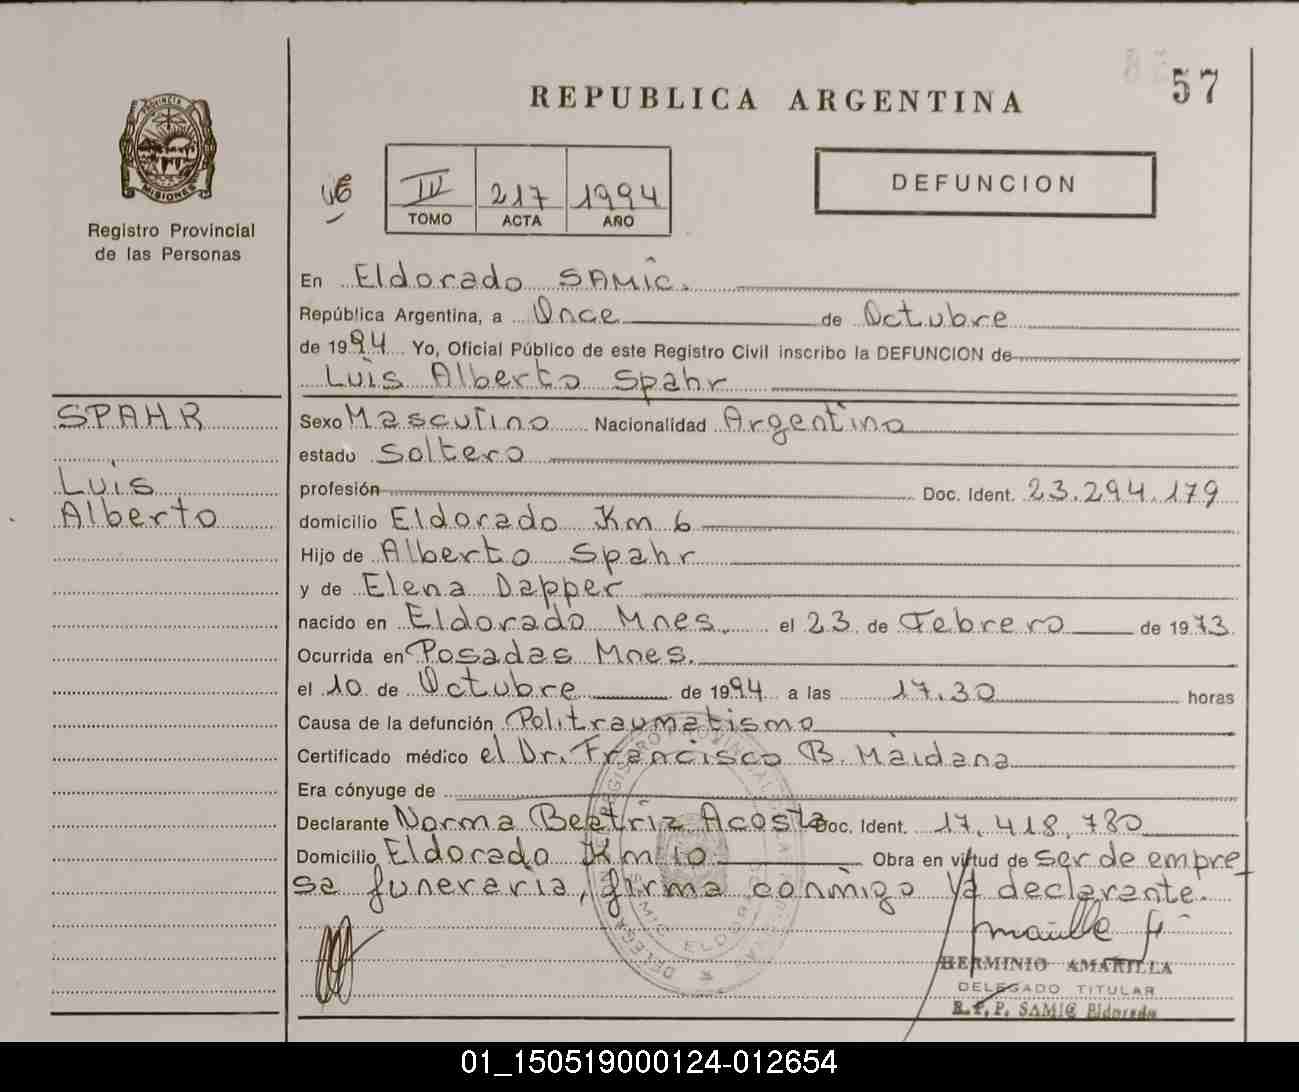 57
REPUBLICA ARGENTINA
PROVINCIA DE
MISIONES
Registro Provincial
de las Personas
IV 217 1994
TOMO ACTA AÑO
DEFUNCION
En Eldorado SAMIC.
República Argentina, a Once de Octubre
de 1994 Yo, Oficial Público de este Registro Civil inscribo la DEFUNCION de
Luis Alberto Spahr
SPAHR
Luis
Alberto
Sexo Masculino Nacionalidad Argentina
estado Soltero
profesión Doc. Ident. 23.294.179
domicilio Eldorado Km 6
Hijo de Alberto Spahr
y de Elena Dapper
nacido en Eldorado Mnes. el 23 de Febrero de 1973
Ocurrida en Posadas Mnes.
el 10 de Octubre de 1994 a las 17.30 horas
Causa de la defunción Politraumatismo
Certificado médico el Dr. Francisco B. Maidana
Era cónyuge de
Declarante Norma Beatriz Acosta Doc. Ident. 17.418.780
Domicilio Eldorado Km 10 Obra en virtud de ser de empre
sa funeraria, firma conmigo la declarante.
HERMINIO AMARILLA
DELEGADO TITULAR
R.P.P. SAMIC Eldorado
01_150519000124-012654